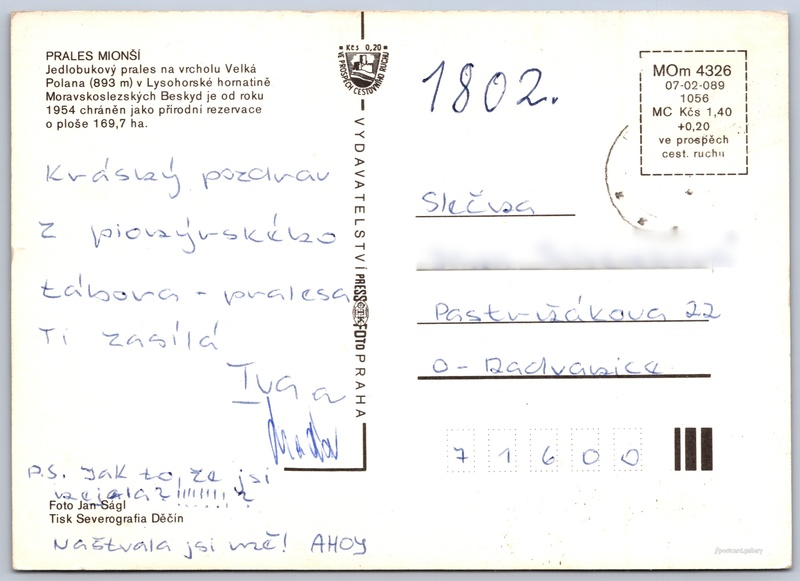 PRALES MIONŠÍ
Jedlobukový prales na vrcholu Velká
Polana (893 m) v Lysohorské hornatině
Moravskoslezských Beskyd je od roku
1954 chráněn jako přírodní rezervace
o ploše 169,7 ha.
Krásný pozdrav
z pionýrského
tábora - pralesa
Ti zasílá
Iva a
P.S. Jak to, že jsi
nejela? !!!!!!!! ?
Foto Jan Ságl
Tisk Severografia Děčín
Naštvala jsi mě! AHOY
Kčs 0,20
VE PROSPĚCH CESTOVNÍHO RUCHU
VYDAVATELSTVÍ PRESSFOTO PRAHA
ČTK
1802.
MOm 4326
07-02-089
1056
MC Kčs 1,40
+0,20
ve prospěch
cest. ruchu
Slečna
Pastrňákova 22
O-Radvanice
71600
//postcard.gallery